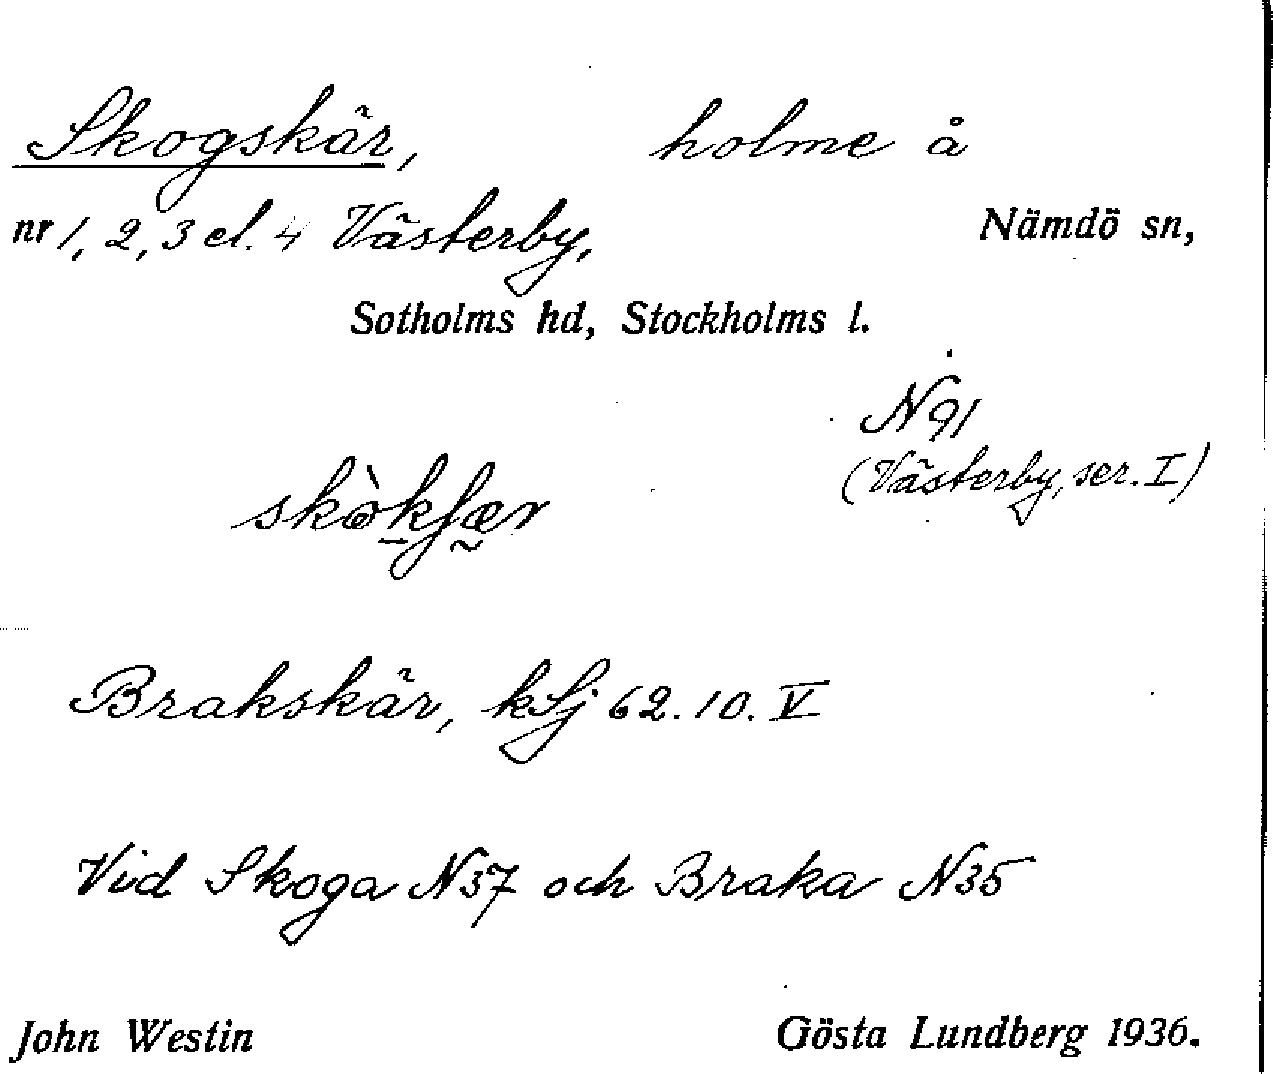 Skogskär, holme å
nr 1, 2, 3 el. 4 Västerby, Nämdö sn,
Sotholms hd, Stockholms l.
N 91
(Västerby, ser. I)
Brakskär, kSj 62.10.V
Vid Skoga N37 och Braka N35
John Westin Gösta Lundberg 1936.